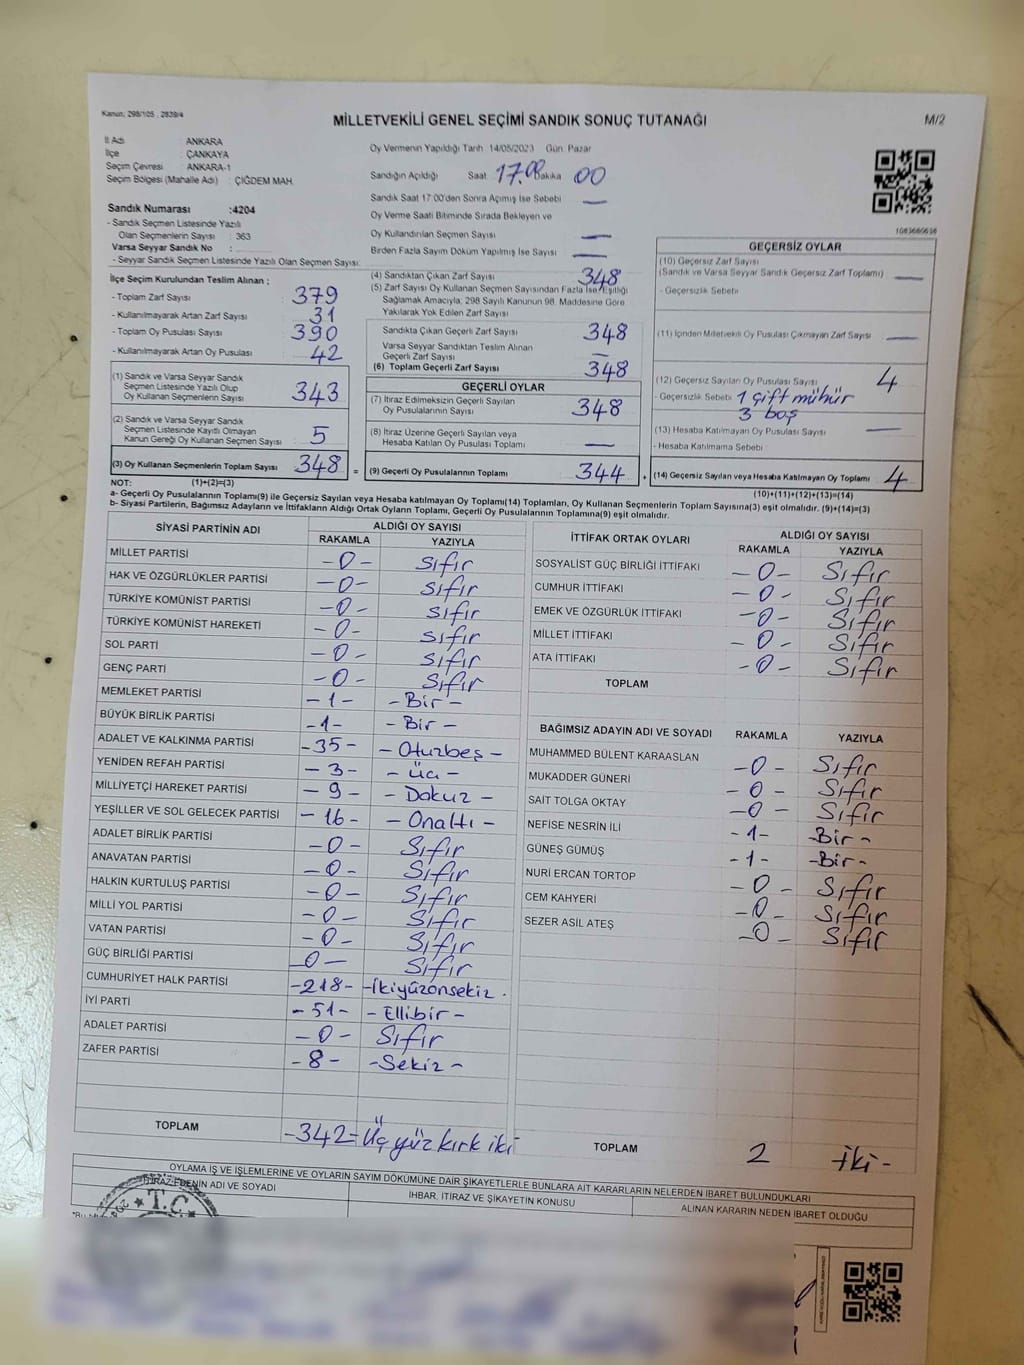 Kanun, 298/105 , 2839/4
MİLLETVEKİLİ GENEL SEÇİMİ SANDIK SONUÇ TUTANAĞI
M/2
İl Adı : ANKARA
İlçe : ÇANKAYA
Seçim Çevresi : ANKARA-1
Seçim Bölgesi (Mahalle Adı) : ÇİĞDEM MAH.
Sandık Numarası :4204
- Sandık Seçmen Listesinde Yazılı
Olan Seçmenlerin Sayısı : 363
Varsa Seyyar Sandık No :
- Seyyar Sandık Seçmen Listesinde Yazılı Olan Seçmen Sayısı:
Oy Vermenin Yapıldığı Tarih 14/05/2023 Gün Pazar
Sandığın Açıldığı Saat 17.00 Dakika 00
Sandık Saat 17:00'den Sonra Açımış İse Sebebi —
Oy Verme Saati Bitiminde Sırada Bekleyen ve
Oy Kullandırılan Seçmen Sayısı —
Birden Fazla Sayım Döküm Yapılmış İse Sayısı —
İlçe Seçim Kurulundan Teslim Alınan :
- Toplam Zarf Sayısı : 379
- Kullanılmayarak Artan Zarf Sayısı : 31
- Toplam Oy Pusulası Sayısı : 390
- Kullanılmayarak Artan Oy Pusulası : 42
(1) Sandık ve Varsa Seyyar Sandık
Seçmen Listesinde Yazılı Olup
Oy Kullanan Seçmenlerin Sayısı : 343
(2) Sandık ve Varsa Seyyar Sandık
Seçmen Listesinde Kayıtlı Olmayan
Kanun Gereği Oy Kullanan Seçmen Sayısı : 5
(3) Oy Kullanan Seçmenlerin Toplam Sayısı : 348 =
(4) Sandıktan Çıkan Zarf Sayısı 348
(5) Zarf Sayısı Oy Kullanan Seçmen Sayısından Fazla İse Eşitliği
Sağlamak Amacıyla, 298 Sayılı Kanunun 98. Maddesine Göre
Yakılarak Yok Edilen Zarf Sayısı
Sandıkta Çıkan Geçerli Zarf Sayısı 348
Varsa Seyyar Sandıktan Teslim Alınan
Geçerli Zarf Sayısı —
(6) Toplam Geçerli Zarf Sayısı 348
GEÇERLİ OYLAR
(7) İtiraz Edilmeksizin Geçerli Sayılan
Oy Pusulalarının Sayısı : 348
(8) İtiraz Üzerine Geçerli Sayılan veya
Hesaba Katılan Oy Pusulası Toplamı : —
(9) Geçerli Oy Pusulalarının Toplamı : 344 +
1083680636
GEÇERSİZ OYLAR
(10) Geçersiz Zarf Sayısı
(Sandık ve Varsa Seyyar Sandık Geçersiz Zarf Toplamı) —
- Geçersizlik Sebebi
(11) İçinden Milletvekili Oy Pusulası Çıkmayan Zarf Sayısı —
(12) Geçersiz Sayılan Oy Pusulası Sayısı 4
- Geçersizlik Sebebi 1 çift mühür
3 boş
(13) Hesaba Katılmayan Oy Pusulası Sayısı —
- Hesaba Katılmama Sebebi
(14) Geçersiz Sayılan veya Hesaba Katılmayan Oy Toplamı 4
NOT: (1)+(2)=(3)
(10)+(11)+(12)+(13)=(14)
a- Geçerli Oy Pusulalarının Toplamı(9) ile Geçersiz Sayılan veya Hesaba katılmayan Oy Toplamı(14) Toplamları, Oy Kullanan Seçmenlerin Toplam Sayısına(3) eşit olmalıdır. (9)+(14)=(3)
b- Siyasi Partilerin, Bağımsız Adayların ve İttifakların Aldığı Ortak Oyların Toplamı, Geçerli Oy Pusulalarının Toplamına(9) eşit olmalıdır.
SİYASİ PARTİNİN ADI ALDIĞI OY SAYISI
RAKAMLA YAZIYLA
MİLLET PARTİSİ -0- Sıfır
HAK VE ÖZGÜRLÜKLER PARTİSİ -0- Sıfır
TÜRKİYE KOMÜNİST PARTİSİ -0- Sıfır
TÜRKİYE KOMÜNİST HAREKETİ -0- Sıfır
SOL PARTİ -0- Sıfır
GENÇ PARTİ -0- Sıfır
MEMLEKET PARTİSİ -1- -Bir-
BÜYÜK BİRLİK PARTİSİ -1- -Bir-
ADALET VE KALKINMA PARTİSİ -35- -Otuzbeş-
YENİDEN REFAH PARTİSİ -3- -Üç-
MİLLİYETÇİ HAREKET PARTİSİ -9- -Dokuz-
YEŞİLLER VE SOL GELECEK PARTİSİ -16- -Onaltı-
ADALET BİRLİK PARTİSİ -0- Sıfır
ANAVATAN PARTİSİ -0- Sıfır
HALKIN KURTULUŞ PARTİSİ -0- Sıfır
MİLLİ YOL PARTİSİ -0- Sıfır
VATAN PARTİSİ -0- Sıfır
GÜÇ BİRLİĞİ PARTİSİ -0- Sıfır
CUMHURİYET HALK PARTİSİ -218- -İkiyüzonsekiz.
İYİ PARTİ -51- -Ellibir-
ADALET PARTİSİ -0- Sıfır
ZAFER PARTİSİ -8- -Sekiz-
TOPLAM -342- Üçyüzkırkiki
İTTİFAK ORTAK OYLARI ALDIĞI OY SAYISI
RAKAMLA YAZIYLA
SOSYALİST GÜÇ BİRLİĞİ İTTİFAKI -0- Sıfır
CUMHUR İTTİFAKI -0- Sıfır
EMEK VE ÖZGÜRLÜK İTTİFAKI -0- Sıfır
MİLLET İTTİFAKI -0- Sıfır
ATA İTTİFAKI -0- Sıfır
TOPLAM
BAĞIMSIZ ADAYIN ADI VE SOYADI RAKAMLA YAZIYLA
MUHAMMED BÜLENT KARAASLAN -0- Sıfır
MUKADDER GÜNERİ -0- Sıfır
SAİT TOLGA OKTAY -0- Sıfır
NEFİSE NESRİN İLİ -1- -Bir-
GÜNEŞ GÜMÜŞ -1- -Bir-
NURİ ERCAN TORTOP -0- Sıfır
CEM KAHYERİ -0- Sıfır
SEZER ASİL ATEŞ -0- Sıfır
TOPLAM 2 İki-
OYLAMA İŞ VE İŞLEMLERİNE VE OYLARIN SAYIM DÖKÜMÜNE DAİR ŞİKAYETLERLE BUNLARA AİT KARARLARIN NELERDEN İBARET BULUNDUKLARI
İTİRAZ EDENİN ADI VE SOYADI İHBAR, İTİRAZ VE ŞİKAYETİN KONUSU ALINAN KARARIN NEDEN İBARET OLDUĞU
T.C